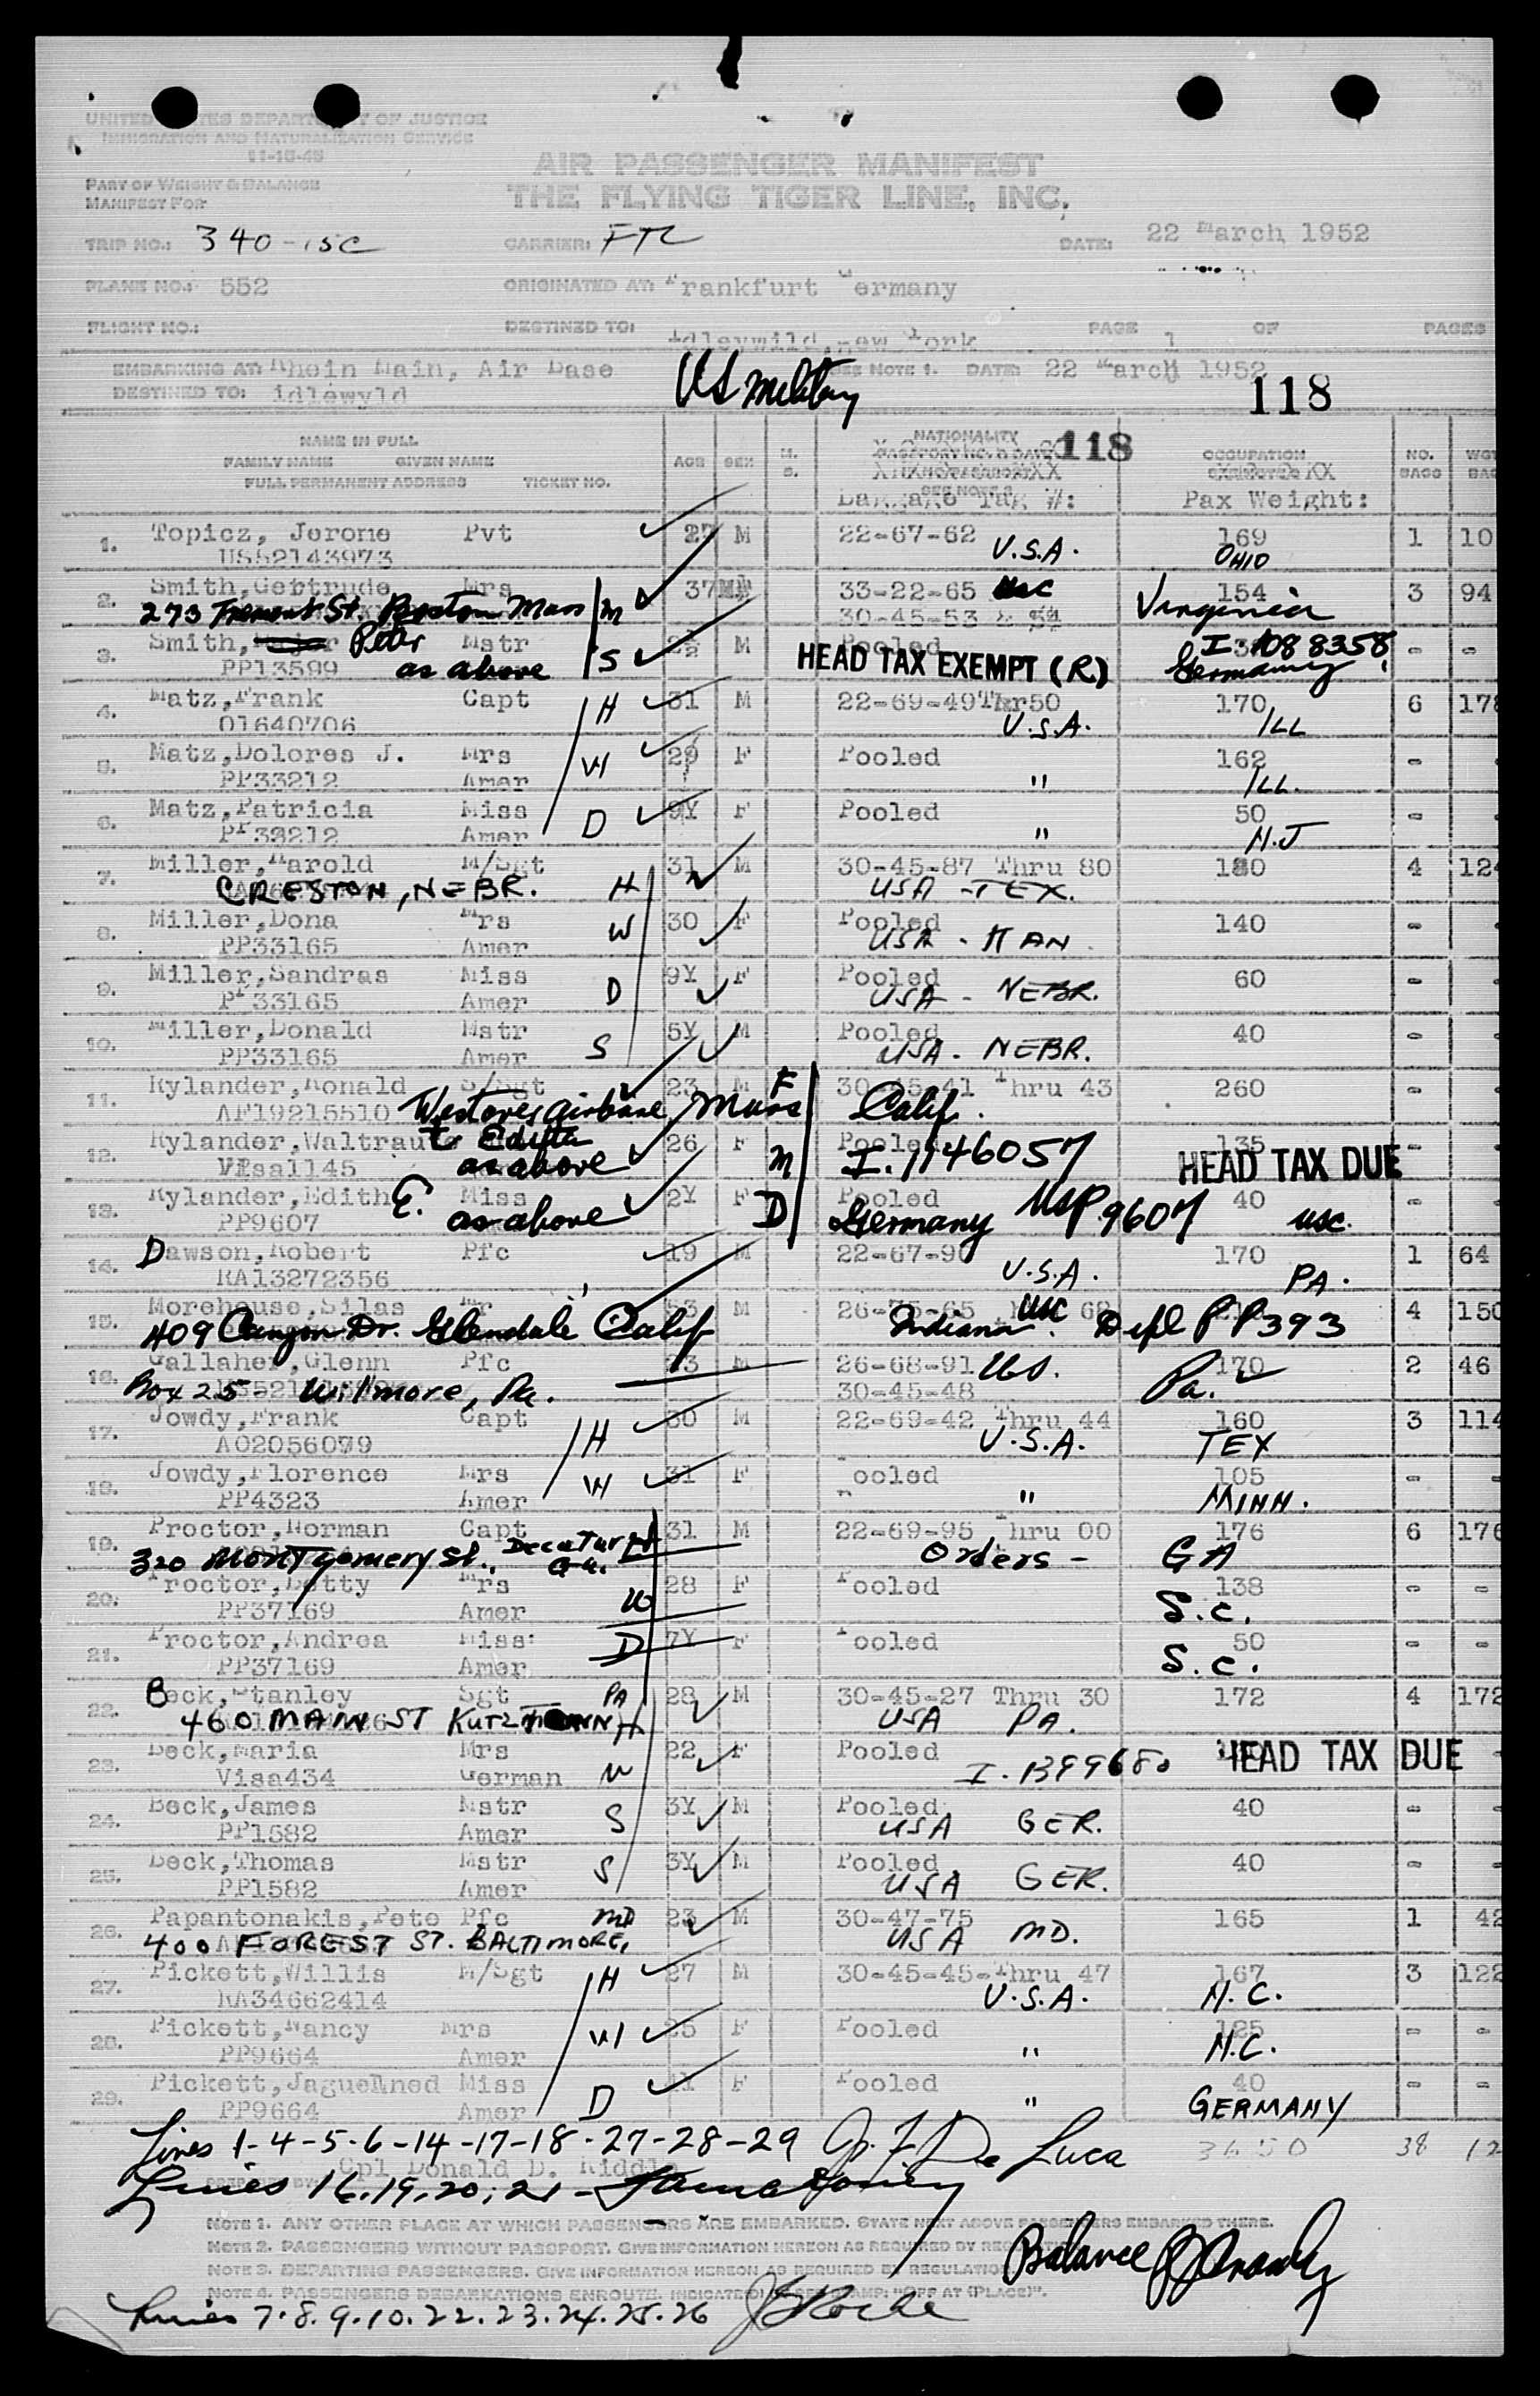 UNITED STATES DEPARTMENT OF JUSTICE
IMMIGRATION AND NATURALIZATION SERVICE
11-15-49
AIR PASSENGER MANIFEST
THE FLYING TIGER LINE, INC.
PART OF WEIGHT & BALANCE
MANIFEST FOR
TRIP NO.: 340-15C CARRIER: FTL DATE: 22 March 1952
PLANE NO.: 552 ORIGINATED AT: Frankfurt Germany
FLIGHT NO.: DESTINED TO: Idleywild, New York PAGE 1 OF PAGES
EMBARKING AT: Rhein Main, Air Base SEE NOTE 1. DATE: 22 March 1952
DESTINED TO: idlewyld US Military 118
NAME IN FULL NATIONALITY 118
FAMILY NAME GIVEN NAME AGE SEX M. S. OCCUPATION NO. BAGS WGT BAG
FULL PERMANENT ADDRESS TICKET NO. SEE NOTE 2
Baggage Tag #: Pax Weight:
1. Topicz, Jerome Pvt 27 M 22-67-62 169 1 10
US52143973 U.S.A. OHIO
2. Smith, Gertrude Mrs 37 33-22-65 USC 154 3 94
273 Fremont St. Boston Mass M 30-45-53 & 54 Virginia
3. Smith, Peter Mstr M Pooled I-1088358 - -
PP13599 as above S HEAD TAX EXEMPT (R) Germany
4. Matz, Frank Capt 31 M 22-69-49 Thr 50 170 6 178
O1640706 H U.S.A. ILL
5. Matz, Dolores J. Mrs 29 F Pooled 162 -
PP33212 Amer W " ILL.
6. Matz, Patricia Miss 9Y F Pooled 50 -
PP33212 Amer D " N.J
7. Miller, Harold M/Sgt 31 M 30-45-87 Thru 80 180 4 124
CRESTON, NEBR. H USA - TEX.
8. Miller, Dona Mrs 30 F Pooled 140 -
PP33165 Amer W USA - KAN.
9. Miller, Sandras Miss 9Y F Pooled 60 -
PP33165 Amer D USA - NEBR.
10. Miller, Donald Mstr 5Y M Pooled 40 -
PP33165 Amer S USA - NEBR.
11. Rylander, Ronald S/Sgt 23 M F 30-45-41 Thru 43 260 -
AF19215510 Westover Airbase Mass Calif.
12. Rylander, Waltraut Editha 26 F Pooled 135 -
Visa1145 as above M I. 1146057 HEAD TAX DUE
13. Rylander, Edith E. Miss 2Y F Pooled 40 -
PP9607 as above D Germany USP 9607 USC.
14. Dawson, Robert Pfc 19 M 22-67-90 170 1 64
RA13272356 U.S.A. PA.
15. Morehouse, Silas Mr 53 M USC 4 150
409 Canyon Dr. Glendale Calif Indiana. Depl PP393
16. Gallaher, Glenn Pfc 23 M 26-68-91 US. 170 2 46
Box 25 - Wilmore, Pa. 30-45-48 Pa.
17. Jowdy, Frank Capt 30 M 22-69-42 Thru 44 160 3 114
AO2056079 H U.S.A. TEX
18. Jowdy, Florence Mrs 31 F Pooled 105 - -
PP4323 Amer W " MINN.
19. Proctor, Norman Capt 31 M 22-69-95 Thru 00 176 6 176
320 Montgomery St. Decatur Ga. H Orders - GA
20. Proctor, Betty Mrs 28 F Pooled 138 - -
PP37169 Amer W S.C.
21. Proctor, Andrea Miss 7Y F Pooled 50 - -
PP37169 Amer D S.C.
22. Beck, Stanley Sgt PA 28 M 30-45-27 Thru 30 172 4 172
460 MAIN ST KUTZTOWN H USA PA.
23. Beck, Maria Mrs 22 F Pooled HEAD TAX DUE
Visa434 German W I-1399680
24. Beck, James Mstr 3Y M Pooled 40 -
PP1582 Amer S USA GER.
25. Beck, Thomas Mstr 3Y M Pooled 40 -
PP1582 Amer S USA GER.
26. Papantonakis, Pete Pfc MD 23 M 30-47-75 165 1 42
400 FOREST ST. BALTIMORE, USA MD.
27. Pickett, Willis M/Sgt 27 M 30-45-45-Thru 47 167 3 122
RA34662414 H U.S.A. N.C.
28. Pickett, Nancy Mrs 25 F Pooled 125 - -
PP9664 Amer W " N.C.
29. Pickett, Jaguelined Miss F Pooled 40 - -
PP9664 Amer D " GERMANY
Lines 1-4-5-6-14-17-18-27-28-29 J. F. De Luca 3650 38 12
PREPARED BY: Cpl Donald D. Riddle
Lines 16,19,20,21 -
NOTE 1. ANY OTHER PLACE AT WHICH PASSENGERS ARE EMBARKED. STATE NEXT ABOVE PASSENGERS EMBARKED THERE.
NOTE 2. PASSENGERS WITHOUT PASSPORT. GIVE INFORMATION HEREON AS REQUIRED BY
NOTE 3. DEPARTING PASSENGERS. GIVE INFORMATION HEREON AS REQUIRED BY REGULATION
NOTE 4. PASSENGERS DEBARKATIONS ENROUTE. INDICATE "OFF AT (PLACE)".
Balance
Lines 7.8.9.10.22.23.24.25.26 J Roche